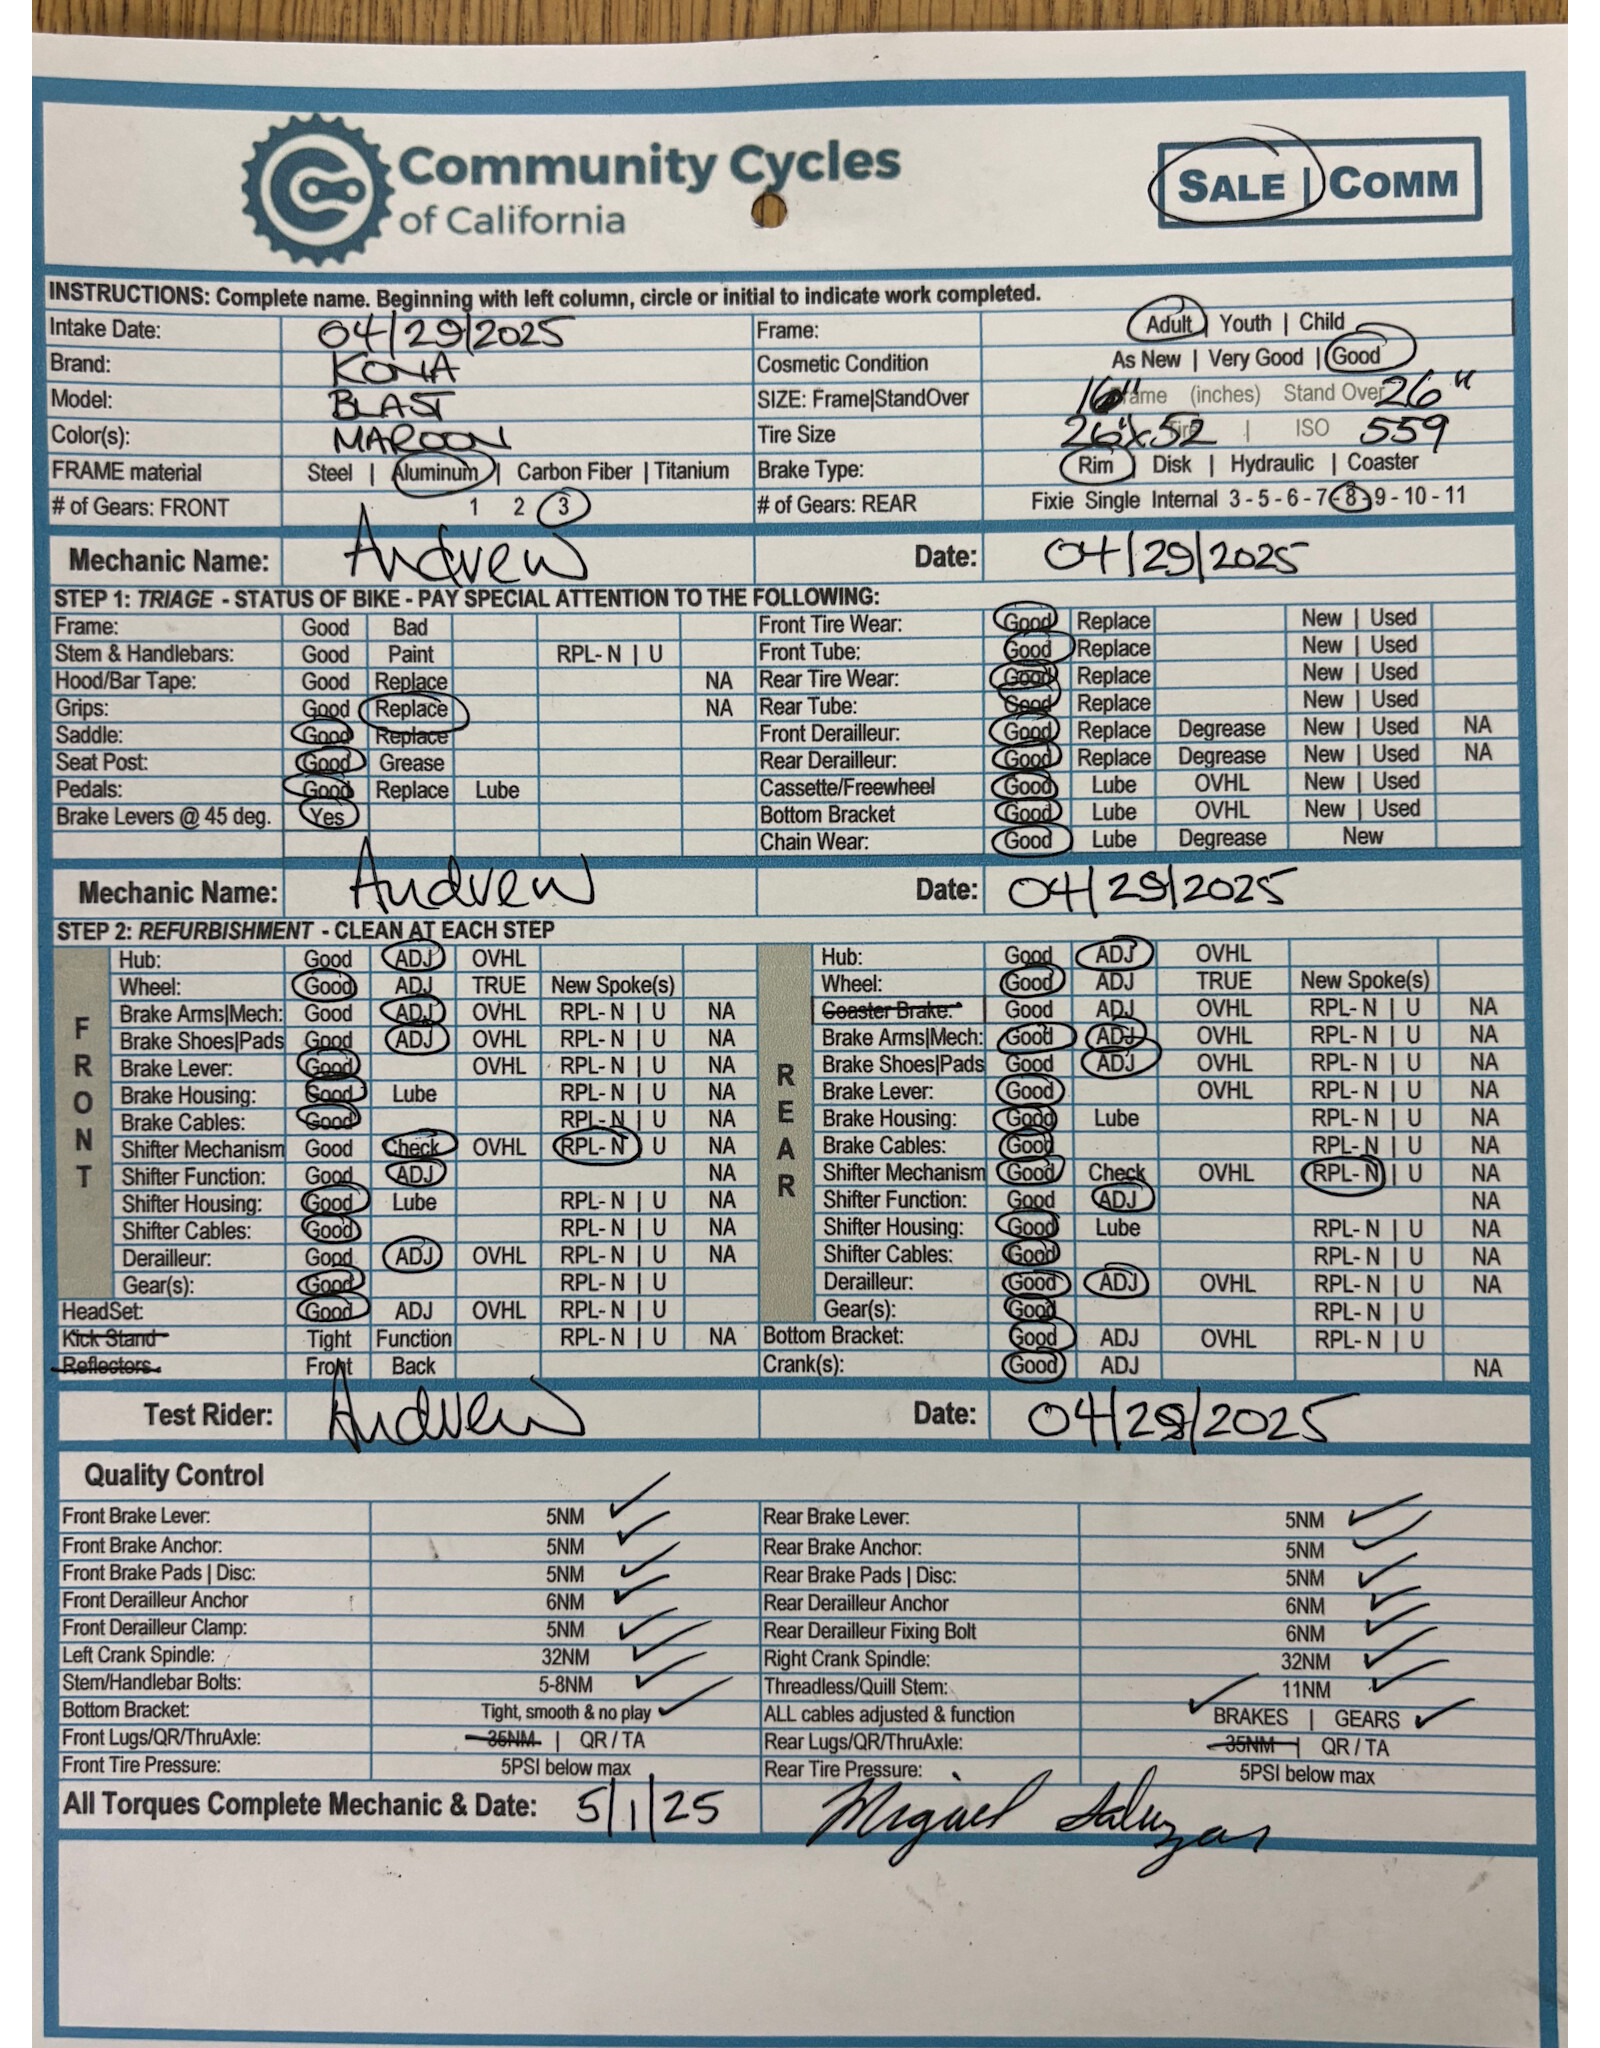 Community Cycles
of California
SALE | COMM
INSTRUCTIONS: Complete name. Beginning with left column, circle or initial to indicate work completed.
Intake Date: 04/29/2025 Frame: Adult | Youth | Child
Brand: KONA Cosmetic Condition As New | Very Good | Good
Model: BLAST SIZE: Frame|StandOver 16" Frame (inches) Stand Over 26"
Color(s): MAROON Tire Size 26"x52 Tire | ISO 559
FRAME material Steel | Aluminum | Carbon Fiber | Titanium Brake Type: Rim | Disk | Hydraulic | Coaster
# of Gears: FRONT 1 2 3 # of Gears: REAR Fixie Single Internal 3 - 5 - 6 - 7 - 8 - 9 - 10 - 11
Mechanic Name: Andrew Date: 04/29/2025
STEP 1: TRIAGE - STATUS OF BIKE - PAY SPECIAL ATTENTION TO THE FOLLOWING:
Frame: Good Bad Front Tire Wear: Good Replace New | Used
Stem & Handlebars: Good Paint RPL- N | U Front Tube: Good Replace New | Used
Hood/Bar Tape: Good Replace NA Rear Tire Wear: Good Replace New | Used
Grips: Good Replace NA Rear Tube: Good Replace New | Used
Saddle: Good Replace Front Derailleur: Good Replace Degrease New | Used NA
Seat Post: Good Grease Rear Derailleur: Good Replace Degrease New | Used NA
Pedals: Good Replace Lube Cassette/Freewheel Good Lube OVHL New | Used
Brake Levers @ 45 deg. Yes Bottom Bracket Good Lube OVHL New | Used
Chain Wear: Good Lube Degrease New
Mechanic Name: Andrew Date: 04/29/2025
STEP 2: REFURBISHMENT - CLEAN AT EACH STEP
FRONT REAR
Hub: Good ADJ OVHL Hub: Good ADJ OVHL
Wheel: Good ADJ TRUE New Spoke(s) Wheel: Good ADJ TRUE New Spoke(s)
Brake Arms|Mech: Good ADJ OVHL RPL- N | U NA Coaster Brake: Good ADJ OVHL RPL- N | U NA
Brake Shoes|Pads Good ADJ OVHL RPL- N | U NA Brake Arms|Mech: Good ADJ OVHL RPL- N | U NA
Brake Lever: Good OVHL RPL- N | U NA Brake Shoes|Pads Good ADJ OVHL RPL- N | U NA
Brake Housing: Good Lube RPL- N | U NA Brake Lever: Good OVHL RPL- N | U NA
Brake Cables: Good RPL- N | U NA Brake Housing: Good Lube RPL- N | U NA
Shifter Mechanism Good Check OVHL RPL- N | U NA Brake Cables: Good RPL- N | U NA
Shifter Function: ADJ NA Shifter Mechanism Good Check OVHL RPL- N | U NA
Shifter Housing: Good Lube RPL- N | U NA Shifter Function: Good ADJ NA
Shifter Cables: Good RPL- N | U NA Shifter Housing: Good Lube RPL- N | U NA
Derailleur: Good ADJ OVHL RPL- N | U NA Shifter Cables: Good RPL- N | U NA
Gear(s): Good RPL- N | U Derailleur: Good ADJ OVHL RPL- N | U NA
HeadSet: Good ADJ OVHL RPL- N | U Gear(s): Good RPL- N | U
Kick Stand Tight Function RPL- N | U NA Bottom Bracket: Good ADJ OVHL RPL- N | U
Reflectors Front Back Crank(s): Good ADJ NA
Test Rider: Andrew Date: 04/29/2025
Quality Control
Front Brake Lever: 5NM ✓ Rear Brake Lever: 5NM ✓
Front Brake Anchor: 5NM ✓ Rear Brake Anchor: 5NM ✓
Front Brake Pads | Disc: 5NM ✓ Rear Brake Pads | Disc: 5NM ✓
Front Derailleur Anchor 6NM ✓ Rear Derailleur Anchor 6NM ✓
Front Derailleur Clamp: 5NM ✓ Rear Derailleur Fixing Bolt 6NM ✓
Left Crank Spindle: 32NM ✓ Right Crank Spindle: 32NM ✓
Stem/Handlebar Bolts: 5-8NM ✓ Threadless/Quill Stem: 11NM ✓
Bottom Bracket: Tight, smooth & no play ✓ ALL cables adjusted & function ✓ BRAKES | GEARS ✓
Front Lugs/QR/ThruAxle: 35NM | QR / TA Rear Lugs/QR/ThruAxle: 35NM | QR / TA
Front Tire Pressure: 5PSI below max Rear Tire Pressure: 5PSI below max
All Torques Complete Mechanic & Date: 5/1/25 Miguel Saluzar